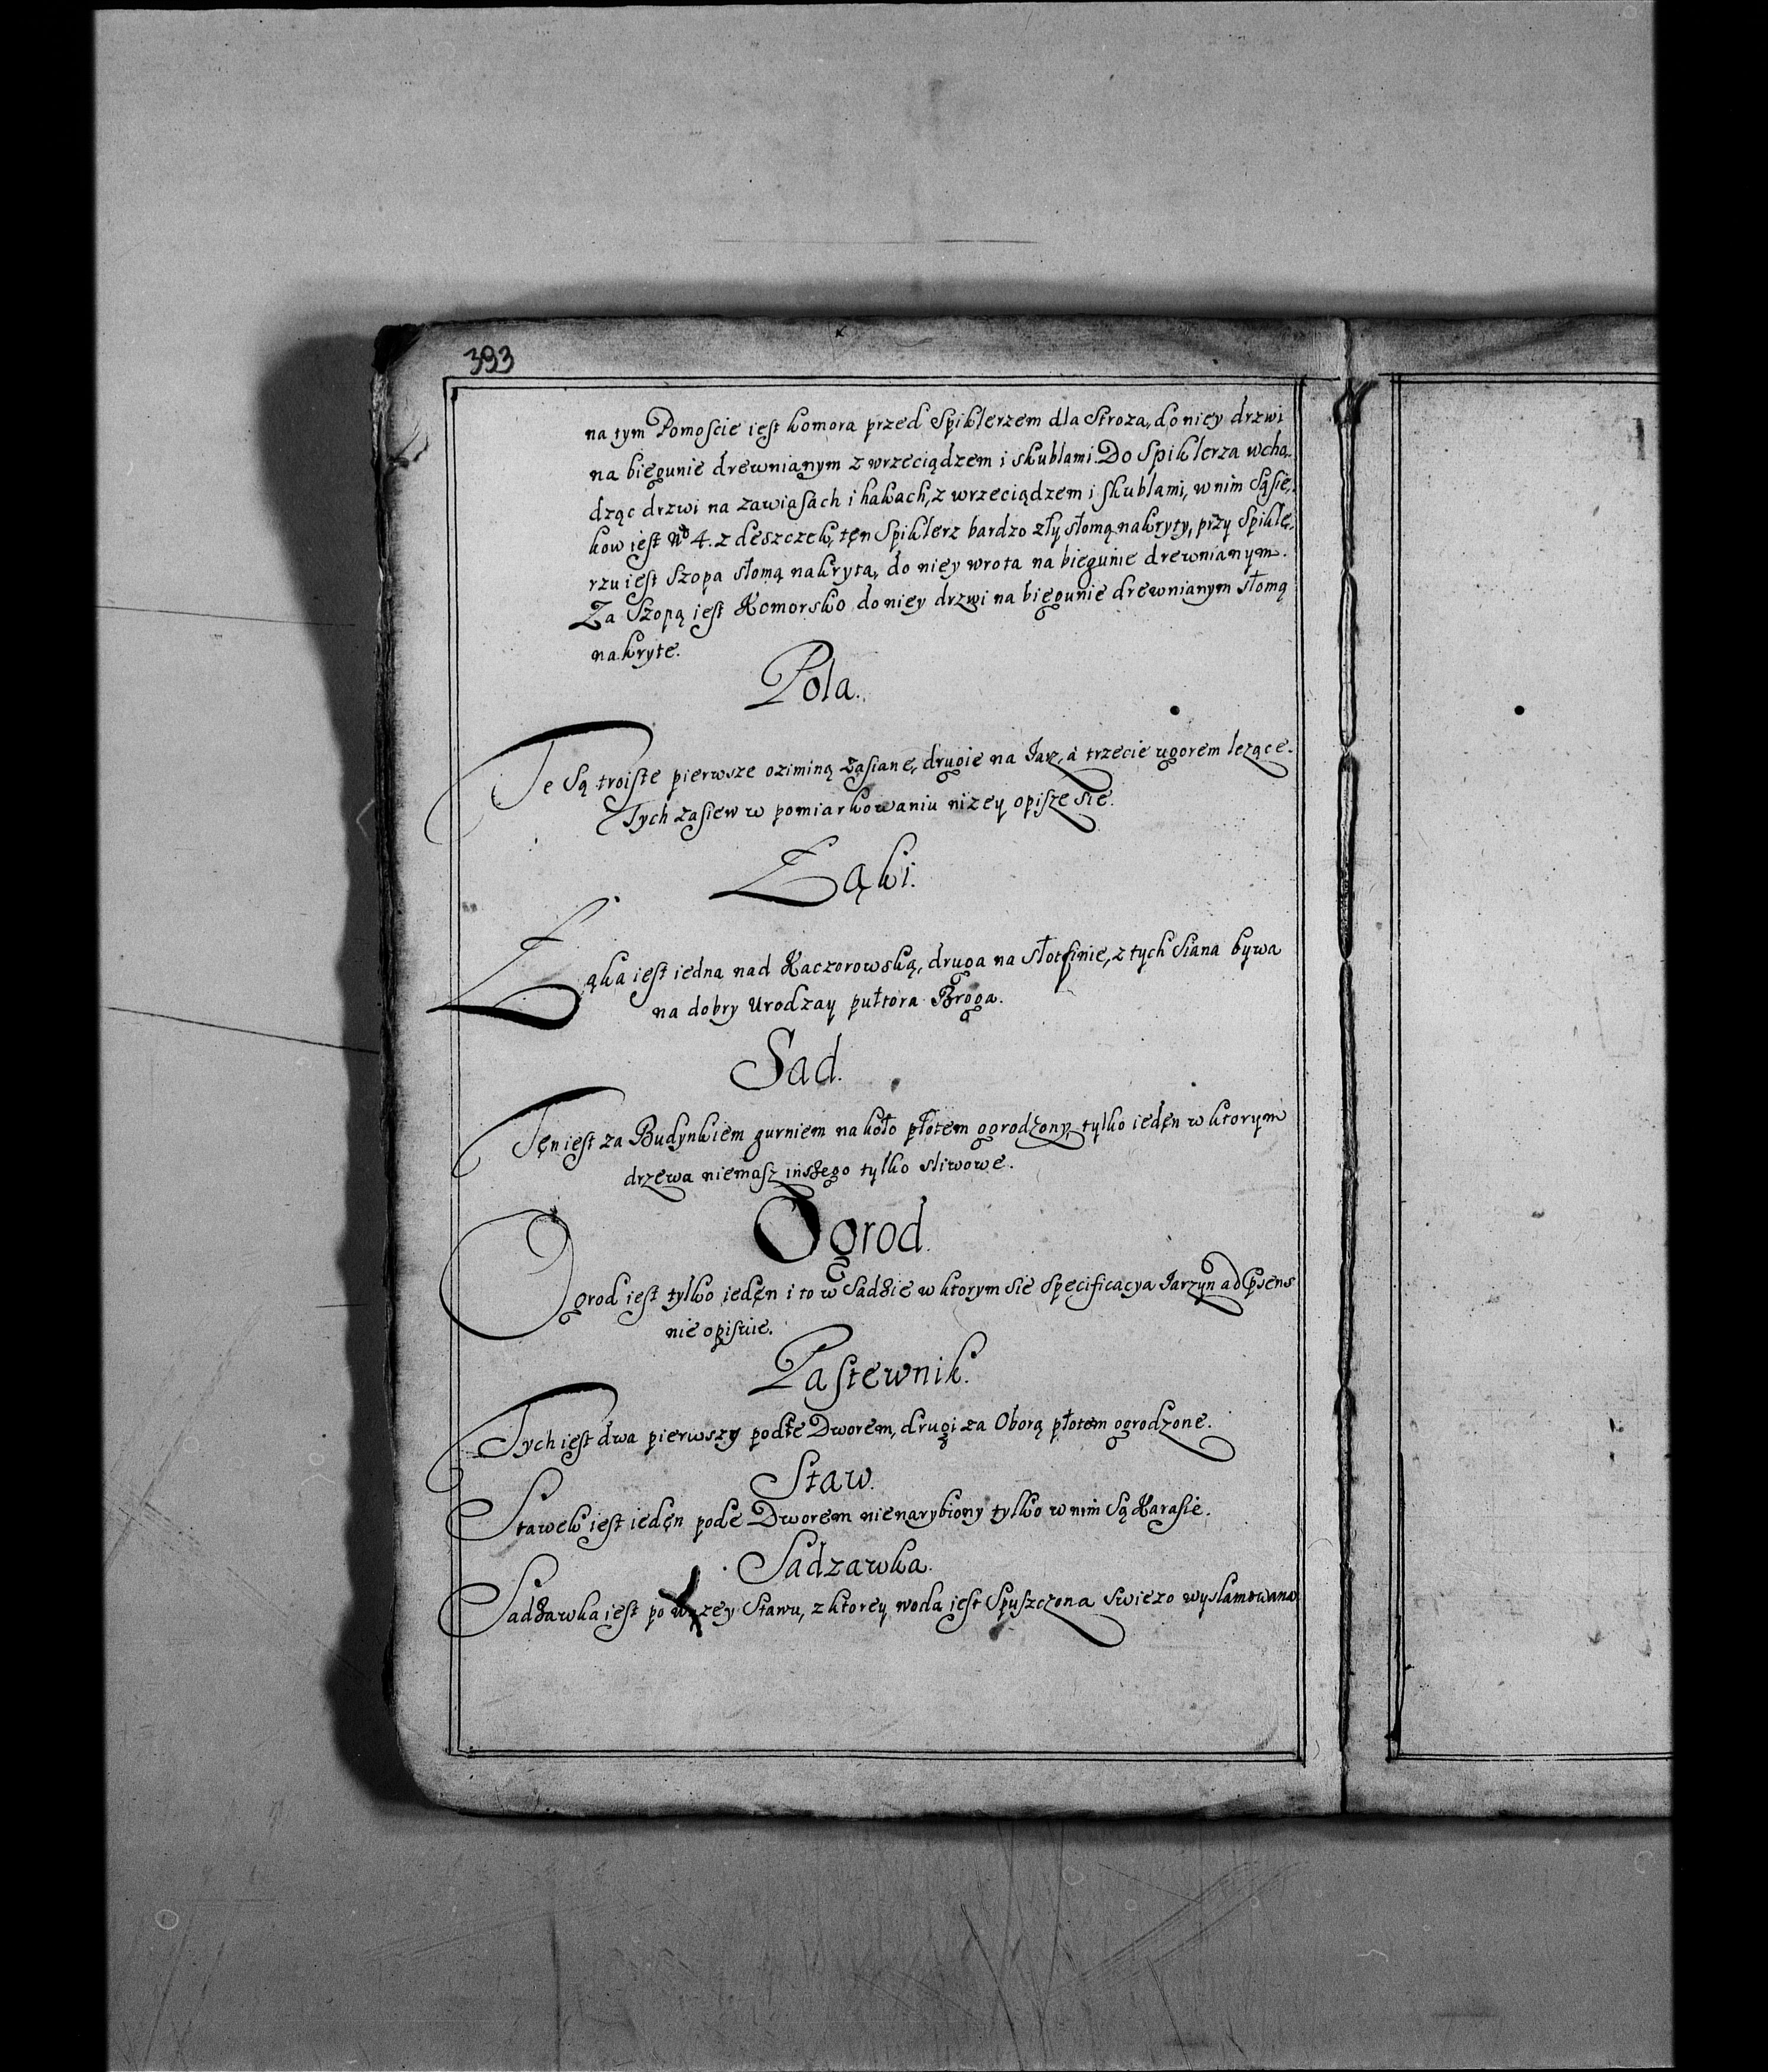 393
na tym Pomoscie iest komora przed Spiklerzem dla Stroza, do niey drzwi
na biegunie drewnianym z wrzeciądzem i skublami. Do Spiklerza wcho-
dząc drzwi na zawiasach i hakach, z wrzeciądzem i skublami, w nim Sąsie-
kow iest No 4. z deszczek, ten Spiklerz bardzo zły słomą nakryty, przy Spikle-
rzu iest Szopa słomą nakryta, do niey wrota na biegunie drewnianym.
Za Szopą iest Komorsko do niey drzwi na biegunie drewnianym słomą
nakryte.
Pola.
Te Są troiste pierwsze oziminą zasiane, drugie na Jarz, á trzecie ugorem lezące.
Tych zasiew w pomiarkowaniu nizey opisze sie.
Łąki.
Łąka iest iedna nad Kaczorowską, druga na Słotfinie, z tych Siana bywa
na dobry Urodzay pułtora Broga.
Sad.
Ten iest za Budynkiem gurniem na koło płotem ogrodzony, tylko ieden w ktorym
drzewa niemasz inszego tylko sliwowe.
Ogrod.
Ogrod iest tylko ieden i to w Sadzie w ktorym sie specificacya Jarzyn ad
nie opisuie.
Pastewnik.
Tych iest dwa pierwszy podłe Dworem, drugi za Oborą płotem ogrodzone.
Staw.
Stawek iest ieden pode Dworem nienarybiony tylko w nim Są Karasie.
Sadzawka.
Sadzawka iest Stawu, z ktorey woda iest Spuszczona swiezo wyslamowana